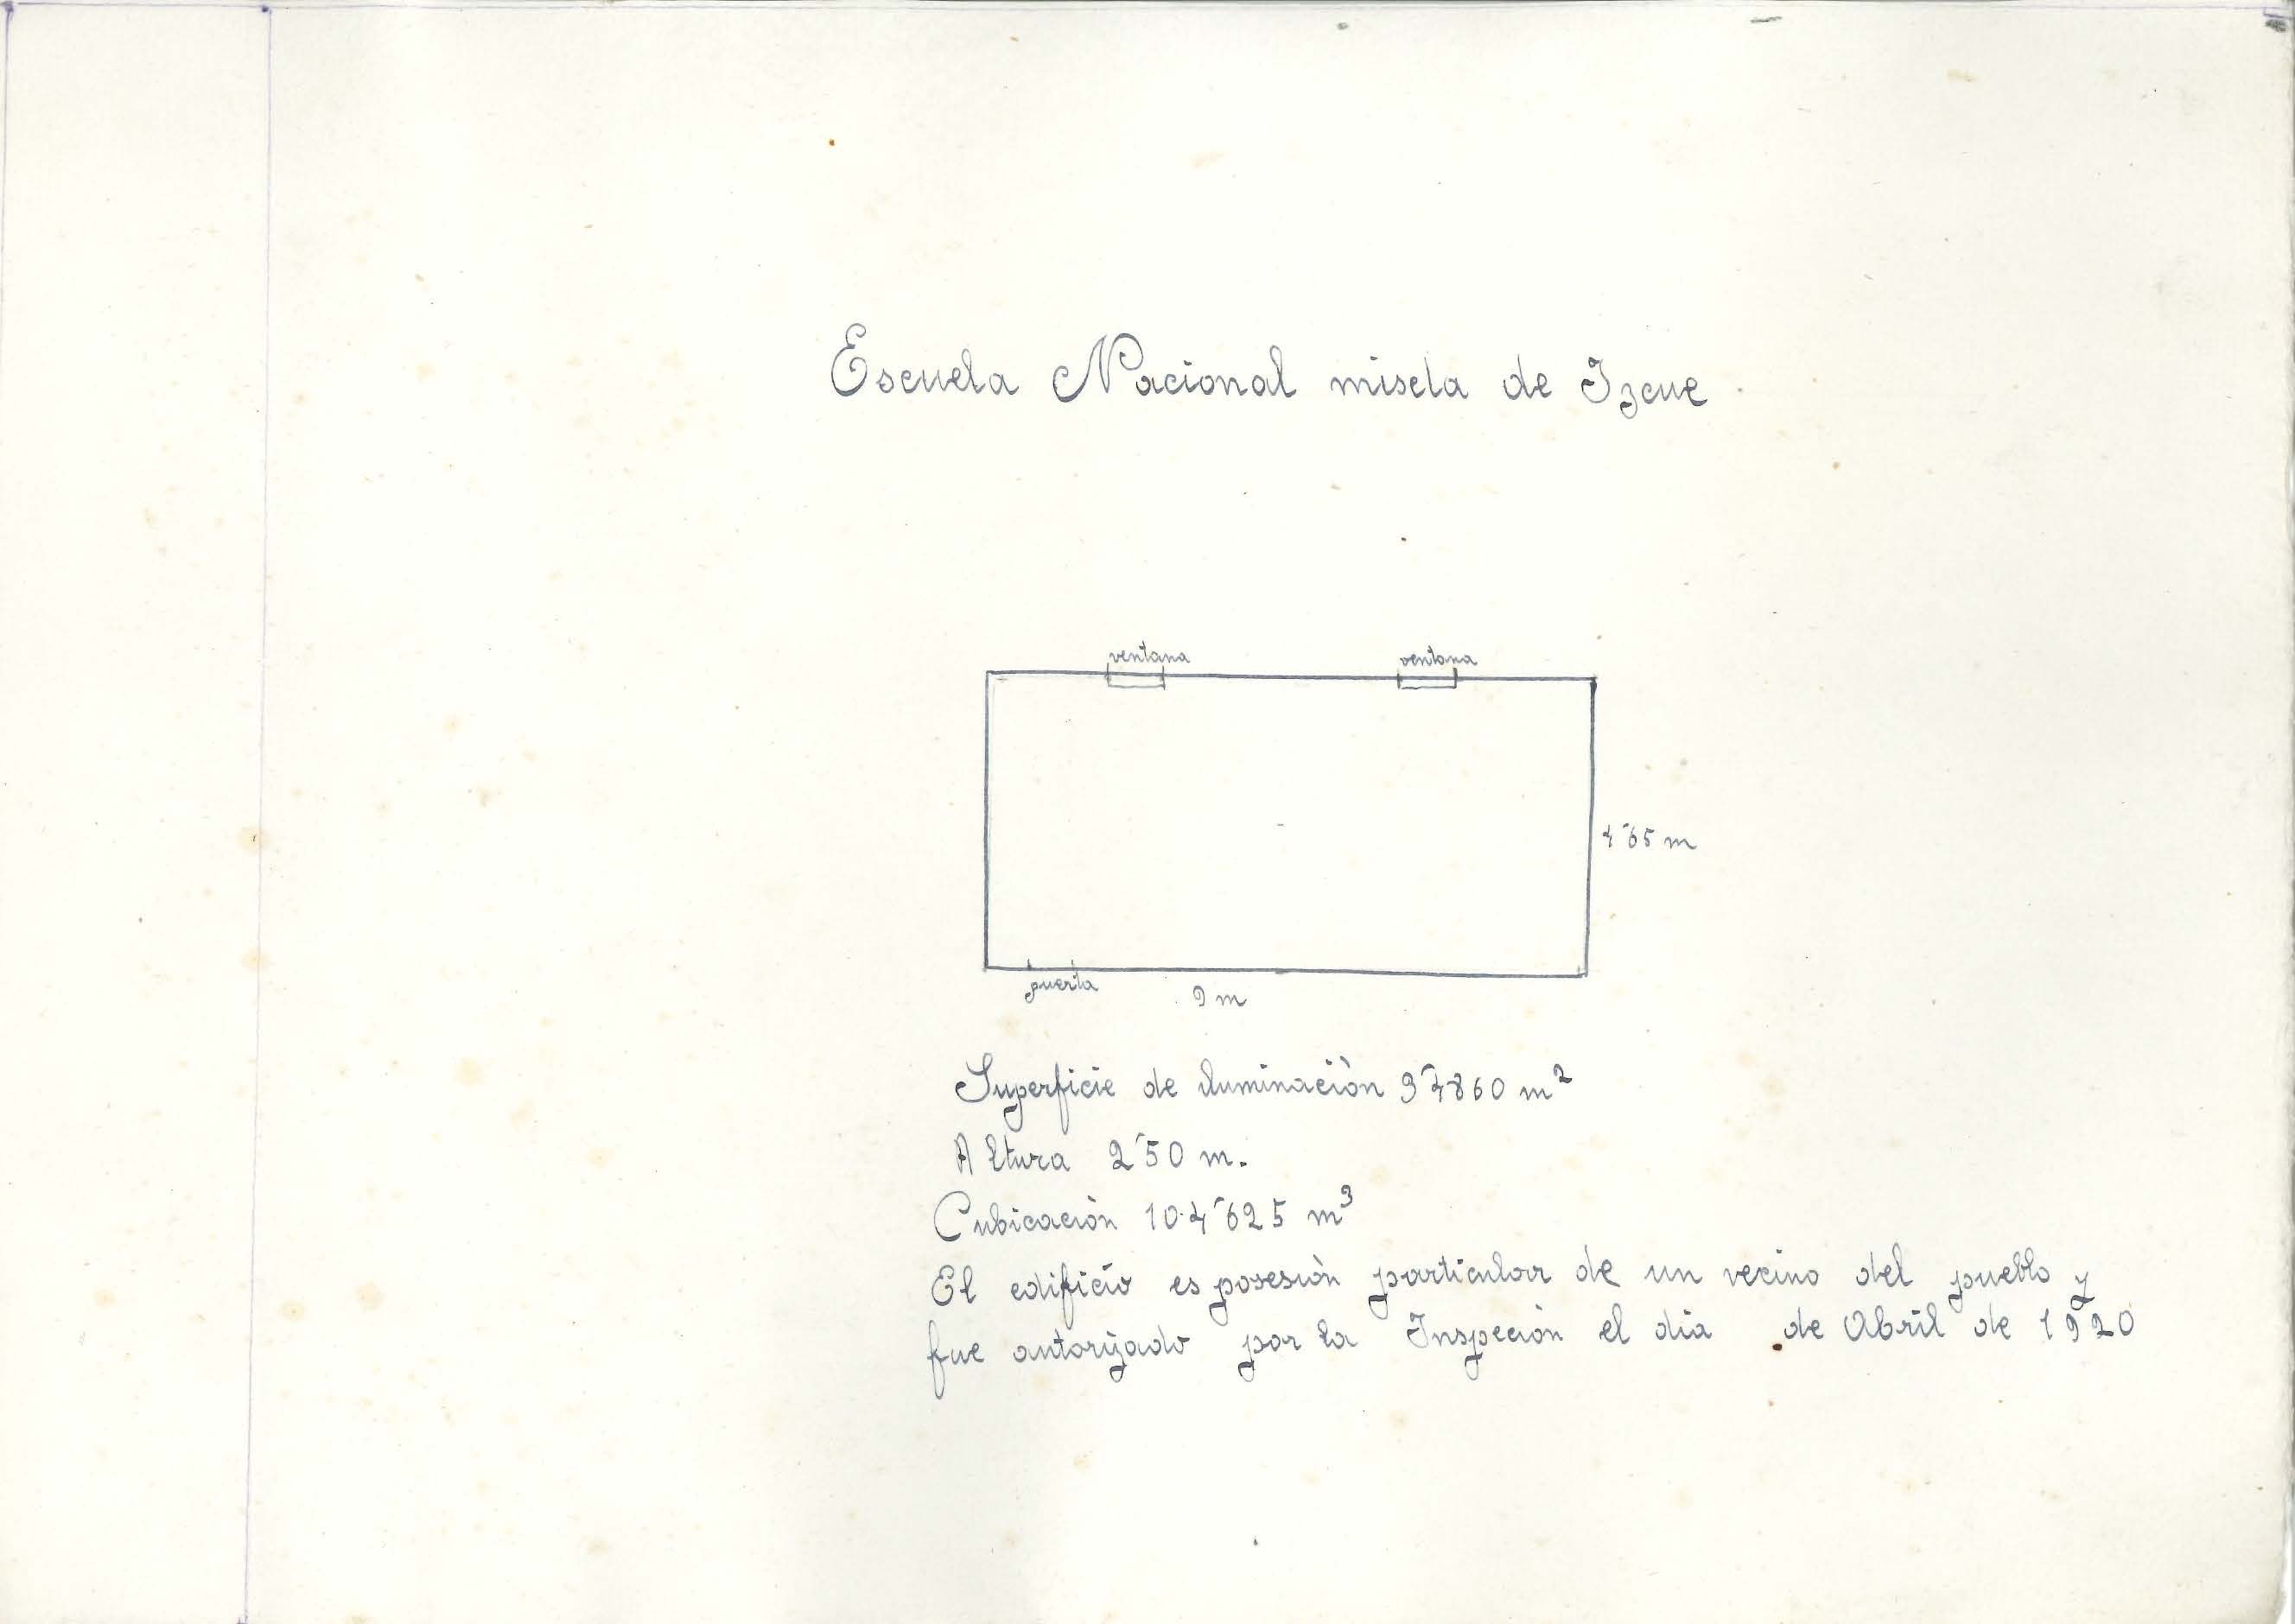 Escuela Nacional miscta de Izcue
ventana ventana
4'65 m
puerta 9 m
Superficie de iluminación 3'4860 m²
Altura 2'50 m.
Cubicación 104'625 m³
El edificio es posesión particular de un vecino del pueblo y
fue autorizado por la Inspeción el dia de Abril de 1920